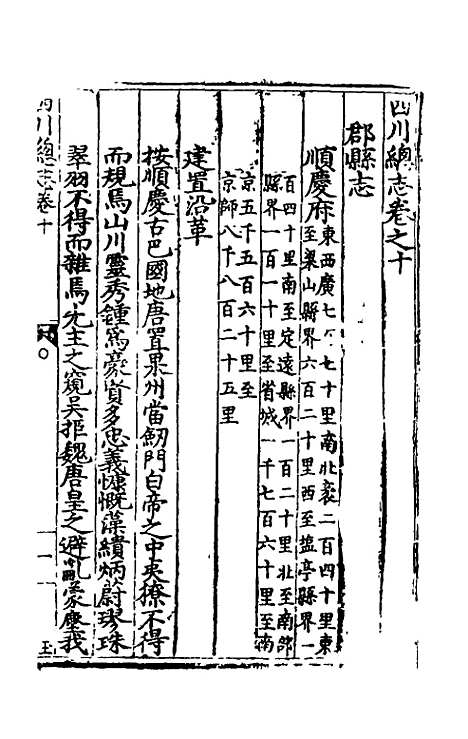 四川總志卷之十
郡縣志
順慶府東西廣七百七十里南北袤二百四十里東
至梁山縣界六百二十里西至鹽亭縣界一
百四十里南至定遠縣界一百二十里北至南部
縣界一百一十里至省城一千七百六十里至南
京五千五百六十里至
京師八千八百二十五里
建置沿革
按順慶古巴國地唐置果州當劒門白帝之中夷獠不得
而規焉山川靈秀鍾爲豪賢多忠義慷慨藻繢炳蔚璆珠
翠羽不得而雜焉先主之窺吳拒魏唐皇之避亂蒙塵我
四川總志卷十